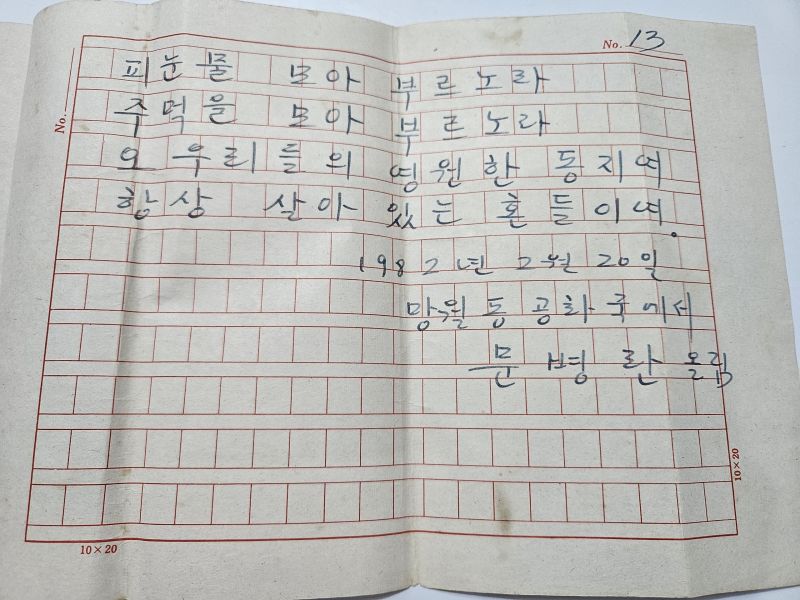 No. 13
No.
피눈물 모아 부르노라
주먹을 모아 부르노라
오 우리들의 영원한 동지여
항상 살아 있는 혼들이여.
1982년 2월 20일
망월동 공화국에서
문병란 올림
10×20
10×20